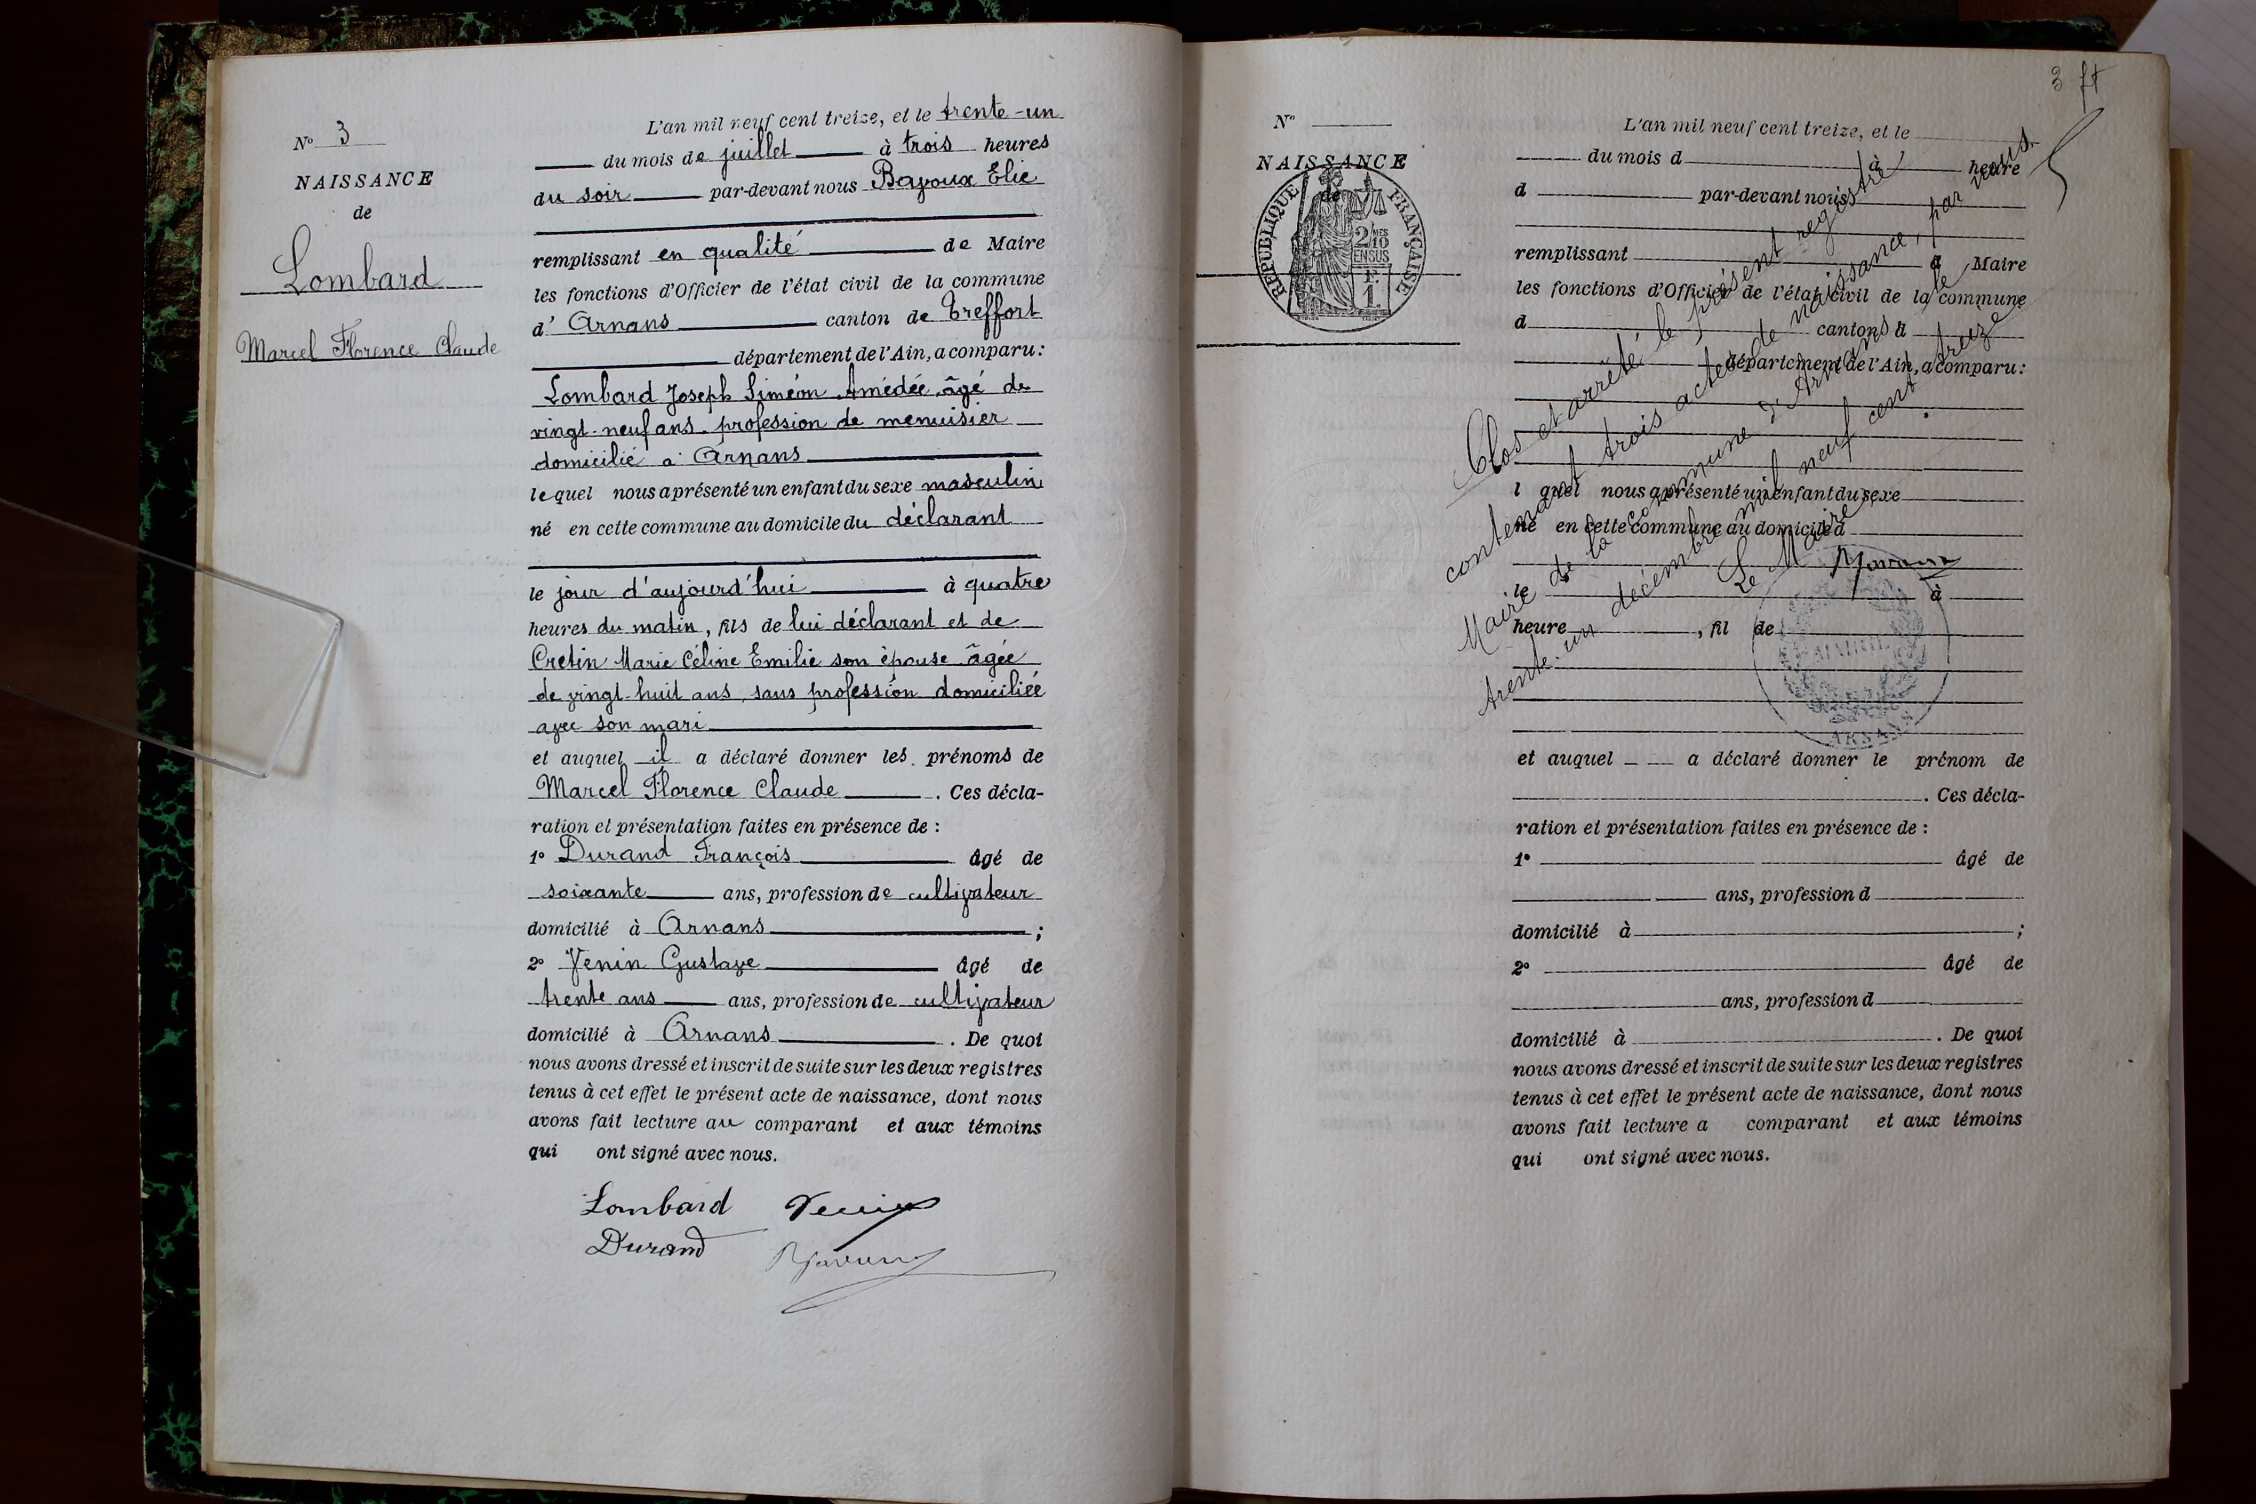 N° 3
NAISSANCE
de
Lombard
Marcel Florence Claude
L'an mil neuf cent treize, et le trente-un
du mois de juillet à trois heures
du soir par-devant nous Bayoux Elie
remplissant en qualité de Maire
les fonctions d'Officier de l'état civil de la commune
d' Arnans canton de Treffort
département de l'Ain, a comparu :
Lombard Joseph Siméon Amédée âgé de
vingt-neuf ans profession de menuisier
domicilié à Arnans
lequel nous a présenté un enfant du sexe masculin
né en cette commune au domicile du déclarant
le jour d'aujourd'hui à quatre
heures du matin, fils de lui déclarant et de
Cretin Marie Céline Emilie son épouse âgée
de vingt-huit ans, sans profession domiciliée
avec son mari
et auquel il a déclaré donner les prénoms de
Marcel Florence Claude . Ces décla-
ration et présentation faites en présence de :
1° Durand François âgé de
soixante ans, profession de cultivateur
domicilié à Arnans ;
2° Venin Gustave âgé de
trente ans ans, profession de cultivateur
domicilié à Arnans . De quoi
nous avons dressé et inscrit de suite sur les deux registres
tenus à cet effet le présent acte de naissance, dont nous
avons fait lecture au comparant et aux témoins
qui ont signé avec nous.
Lombard Venin
Durand
3
N°
NAISSANCE
de
REPUBLIQUE FRANÇAISE
2/10 MES
EN SUS
1 F.
L'an mil neuf cent treize, et le
du mois d à heure
d par-devant nous
remplissant d Maire
les fonctions d'Officier de l'état civil de la commune
d canton d
département de l'Ain, a comparu :
l quel nous a présenté un enfant du sexe
né en cette commune au domicile d
le à
heure , fil de
et auquel a déclaré donner le prénom de
. Ces décla-
ration et présentation faites en présence de :
1° âgé de
ans, profession d
domicilié à ;
2° âgé de
ans, profession d
domicilié à . De quoi
nous avons dressé et inscrit de suite sur les deux registres
tenus à cet effet le présent acte de naissance, dont nous
avons fait lecture a comparant et aux témoins
qui ont signé avec nous.
Clos et arrêté le présent registre
contenant trois actes de naissance, par nous,
Maire de la commune d'Arnans le
trente-un décembre mil neuf cent treize.
Le Maire
MAIRIE
ARNANS